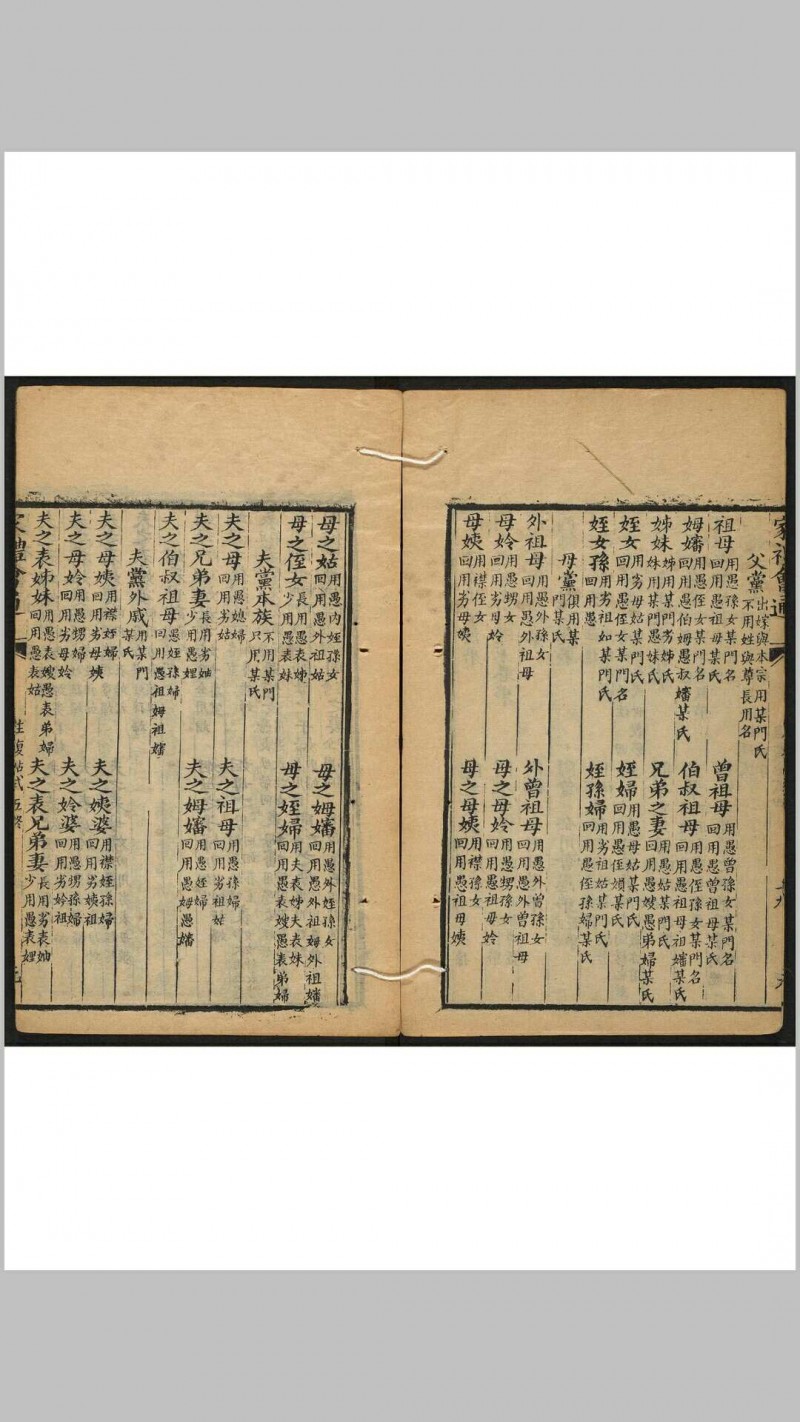 父黨 出嫁與本宗用某門氏 不用姓與尊長用名
祖母 用愚孫女某門名 回用愚祖母某氏 曾祖母 用愚曾孫女某門名 回用愚曾祖母某氏
姆嬸 用愚侄女某門名 回用愚伯姆愚叔嬸某氏 伯叔祖母 用愚侄孫女某門名 回用愚祖母祖嬸某氏
姊妹 姊用某門劣姊氏 妹用某門愚妹氏 兄弟之妻 用愚姑某門氏 回用愚嫂愚弟婦某氏
姪女 用劣母姑某門氏 回用愚侄女某門名 姪婦 用愚母姑某門氏 回用愚侄婦某氏
姪女孫 用劣祖如某門氏 回用愚 姪孫婦 用劣祖姑某門氏 回用愚侄孫婦某氏
母黨 俱用某門某氏
外祖母 用愚外孫女 回用愚外祖母 外曾祖母 用愚外曾孫女 回用愚外曾祖母
母妗 用愚甥女 回用劣母妗 母之母妗 用愚甥孫女 回用愚祖母妗
母姨 用襟侄女 回用劣母姨 母之母姨 用襟孫女 回用愚祖母姨
母之姑 用愚內姪孫女 回用愚外祖姑 母之姆嬸 用愚外姪孫女 回用愚外祖姆外祖嬸
母之侄女 長用愚表姊 少用愚表妹 母之姪婦 用夫表姊夫表妹 回用愚表嫂愚表弟婦
夫黨本族 不用某門 只用某氏
夫之母 用愚媳婦 回用劣姑 夫之祖母 用愚孫婦 回用劣祖姑
夫之兄弟妻 長用劣妯 少用愚娌 夫之姆嬸 用愚姪婦 回用愚姆愚嬸
夫之伯叔祖母 用愚姪孫婦 回用愚祖姆祖嬸
夫黨外戚 用某門某氏
夫之母姨 用襟姪婦 回用劣母姨 夫之姨婆 用襟姪孫婦 回用劣姨祖
夫之母妗 用愚甥婦 回用劣母妗 夫之妗婆 用愚甥孫婦 回用劣妗祖
夫之表姊妹 用愚表嫂愚表弟婦 回用愚表姑 夫之表兄弟妻 長用劣表妯 少用愚表娌
家禮會通